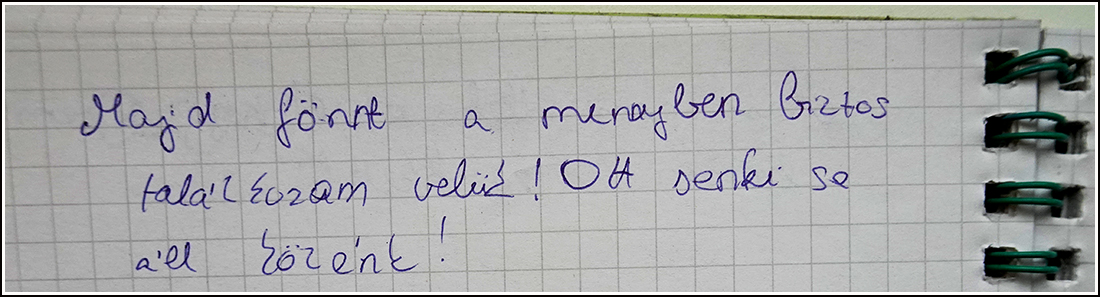 Majd fönnt a mennyben biztos
találkozam velük! Ott senki se
áll közénk!